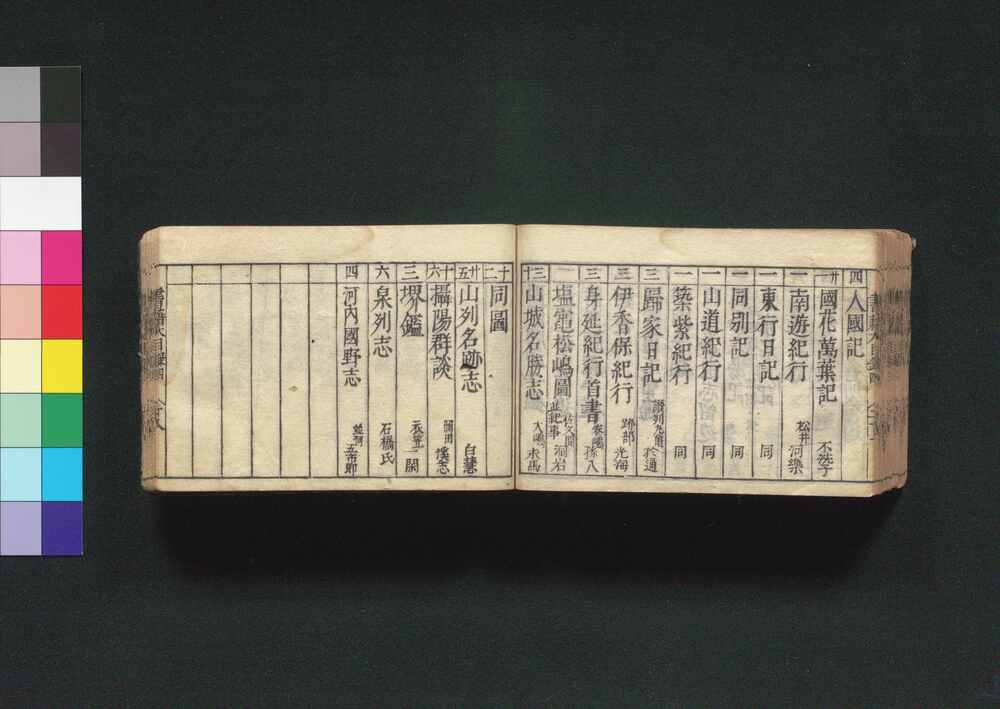 四 人國記
廿一 國花萬葉記
一 南遊紀行 松井 河樂
一 東行日記 同
一 同別記 同
一 山道紀行 同
一 築紫紀行 同
三 歸家日記
三 伊香保紀行 跡部 光海
三 身延紀行首書
一 塩竈松嶋圖 並紀事 洞岩
三十 山城名勝志 大嶋
十二 同圖
廿五 山列名跡志 白慧
十六 攝陽群談 岡田 溪志
三 堺鑑 衣笠 一閑
六 泉列志 石橋氏
四 河內國野志